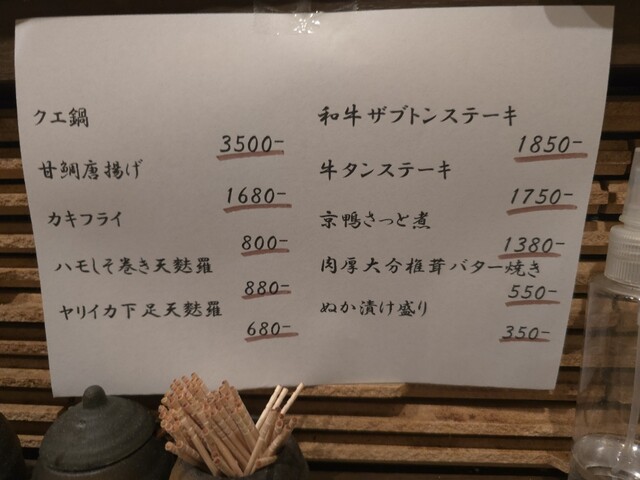 クエ鍋
3500-
甘鯛唐揚げ
1680-
カキフライ
800-
ハモしそ巻き天麩羅
880-
ヤリイカ下足天麩羅
680-
和牛ザブトンステーキ
1850-
牛タンステーキ
1750-
京鴨さっと煮
1380-
肉厚大分椎茸バター焼き
550-
ぬか漬け盛り
350-